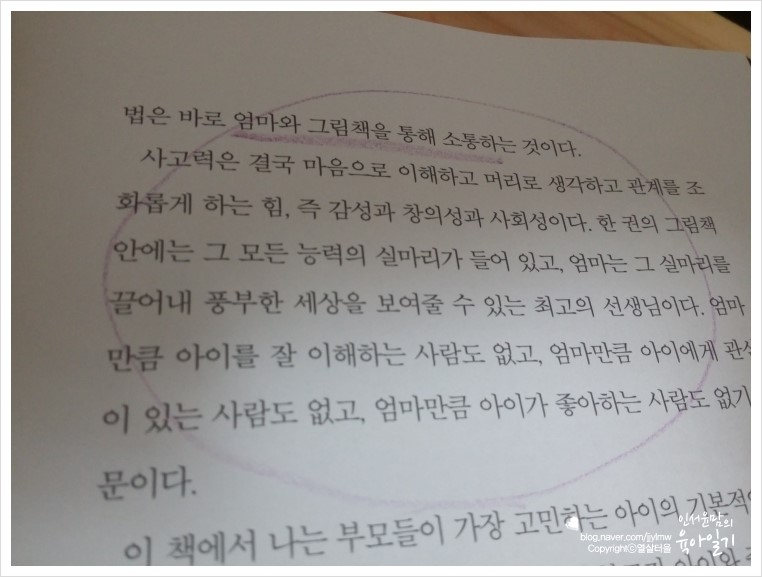 법은 바로 엄마와 그림책을 통해 소통하는 것이다.
사고력은 결국 마음으로 이해하고 머리로 생각하고 관계를 조
화롭게 하는 힘, 즉 감성과 창의성과 사회성이다. 한 권의 그림책
안에는 그 모든 능력의 실마리가 들어 있고, 엄마는 그 실마리를
끌어내 풍부한 세상을 보여줄 수 있는 최고의 선생님이다. 엄마
만큼 아이를 잘 이해하는 사람도 없고, 엄마만큼 아이에게 관심
이 있는 사람도 없고, 엄마만큼 아이가 좋아하는 사람도 없기
문이다.
이 책에서 나는 부모들이 가장 고민하는 아이의 기본적
인서윤맘의
육아일기
blog.naver.com/jjylmw
Copyrightⓒ열살터울